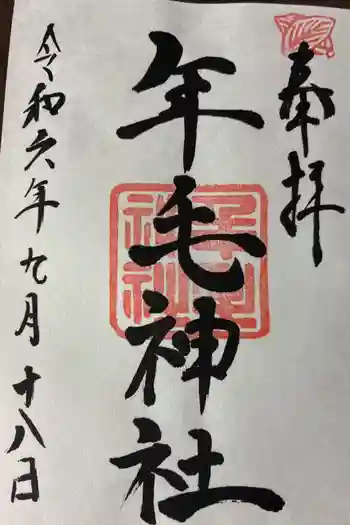 奉拝
年毛神社
令和六年九月十八日